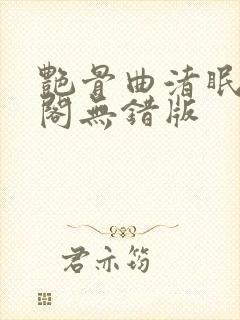 艷骨曲渚眠
閣無錯版
君亦筠